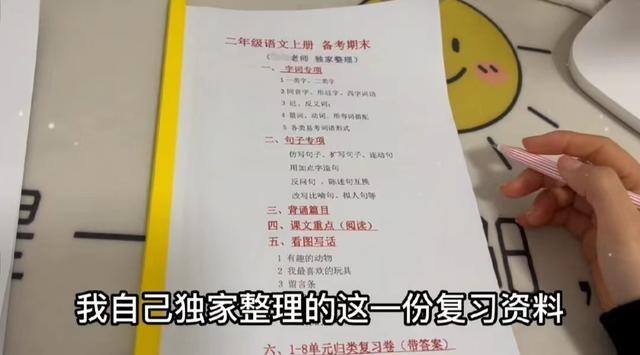 二年级语文上册 备考期末
老师 独家整理）
一、字词专项
1 一类字、二类字
2 同音字、形近字、四字词语
3 近、反义词；
4 量词、动词、形容词搭配
5 各类易考词语形式
二、句子专项
仿写句子、扩写句子、连动句
用加点字造句
反问句、陈述句互换
改写比喻句、拟人句等
三、背诵篇目
四、课文重点（阅读）
五、看图写话
1 有趣的动物
2 我最喜欢的玩具
3 留言条
我自己独家整理的这一份复习资料
六、1-8单元归类复习卷（带答案）